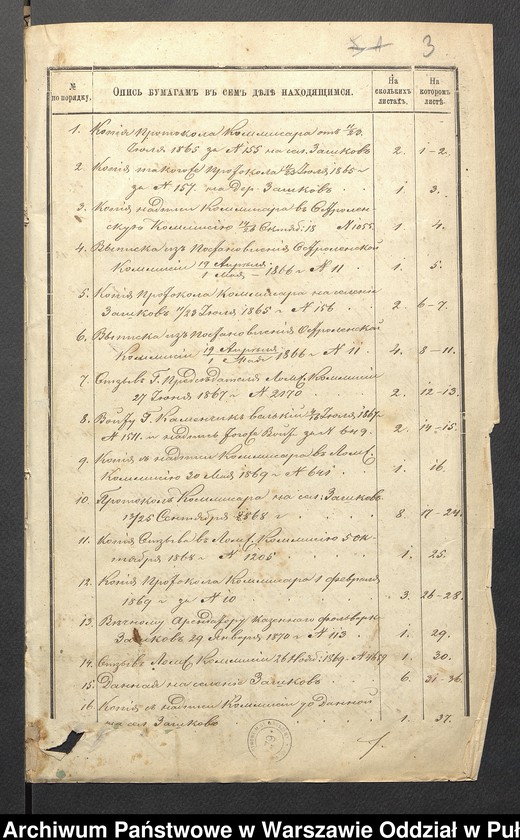 3
№ по порядку.
Опись бумагамъ въ семъ дѣлѣ находящимся.
На сколькихъ листахъ.
На которомъ листѣ.
1. Копія протокола Коммисара отъ 11/23
Іюля 1865 за N 155 на сел. Зашковъ 2. 1-2.
2. Копія такого протокола 11/23 Іюля 1865 г
за N 157 на Дер. Зашковъ 1. 3.
3. Копія надписи Коммисара въ Остролен-
скую Коммисію Сентяб: 18 N 1055. 1. 4.
4. Выписка изъ Постановленія Остроленской
Коммисіи 19 Апрѣля / 1 Мая 1866 г N 11 1. 5.
5. Копія Протокола Коммисара на селеніе
Зашковъ 11/23 Іюля 1865 г N 156 2. 6-7.
6. Выписка изъ Постановленія Остроленской
Коммисіи 19 Апрѣля / 1 Мая 1866 г N 11 4. 8-11.
7. Отзывъ Г. Предсѣдателя Ломж. Коммисіи
27 Іюня 1867 г N 2170 2. 12-13.
8. Войту Г. Іюля 1867
N 1511. и надпись Войта за N 649. 2. 14-15.
9. Копія съ надписи Коммисара въ Лом.
Коммисію 20 Мая 1869 г N 641 1. 16.
10. Протоколъ Коммисара на сел. Зашковъ
13/25 Сентября 1868 г 8. 17-24.
11. Копія Отзыва въ Лом. Коммисію 5 Ок-
тября 1868 г N 1205 1. 25.
12. Копія Протокола Коммисара 1 февраля
1869 г за N 10 3. 26-28.
13. Вѣчному Арендатору казеннаго фольварк.
Зашковъ 29 Января 1870 г N 113 1. 29.
14. Отзывъ Лом. Коммисіи 26 Нояб: 1869 N 4659 1. 30.
15. Данная на селеніе Зашковъ 6. 31-36.
16. Копія съ надписи Коммисара до Данной
на сел. Зашковъ 1. 37.
Archiwum Państwowe w Warszawie Oddział w Puł